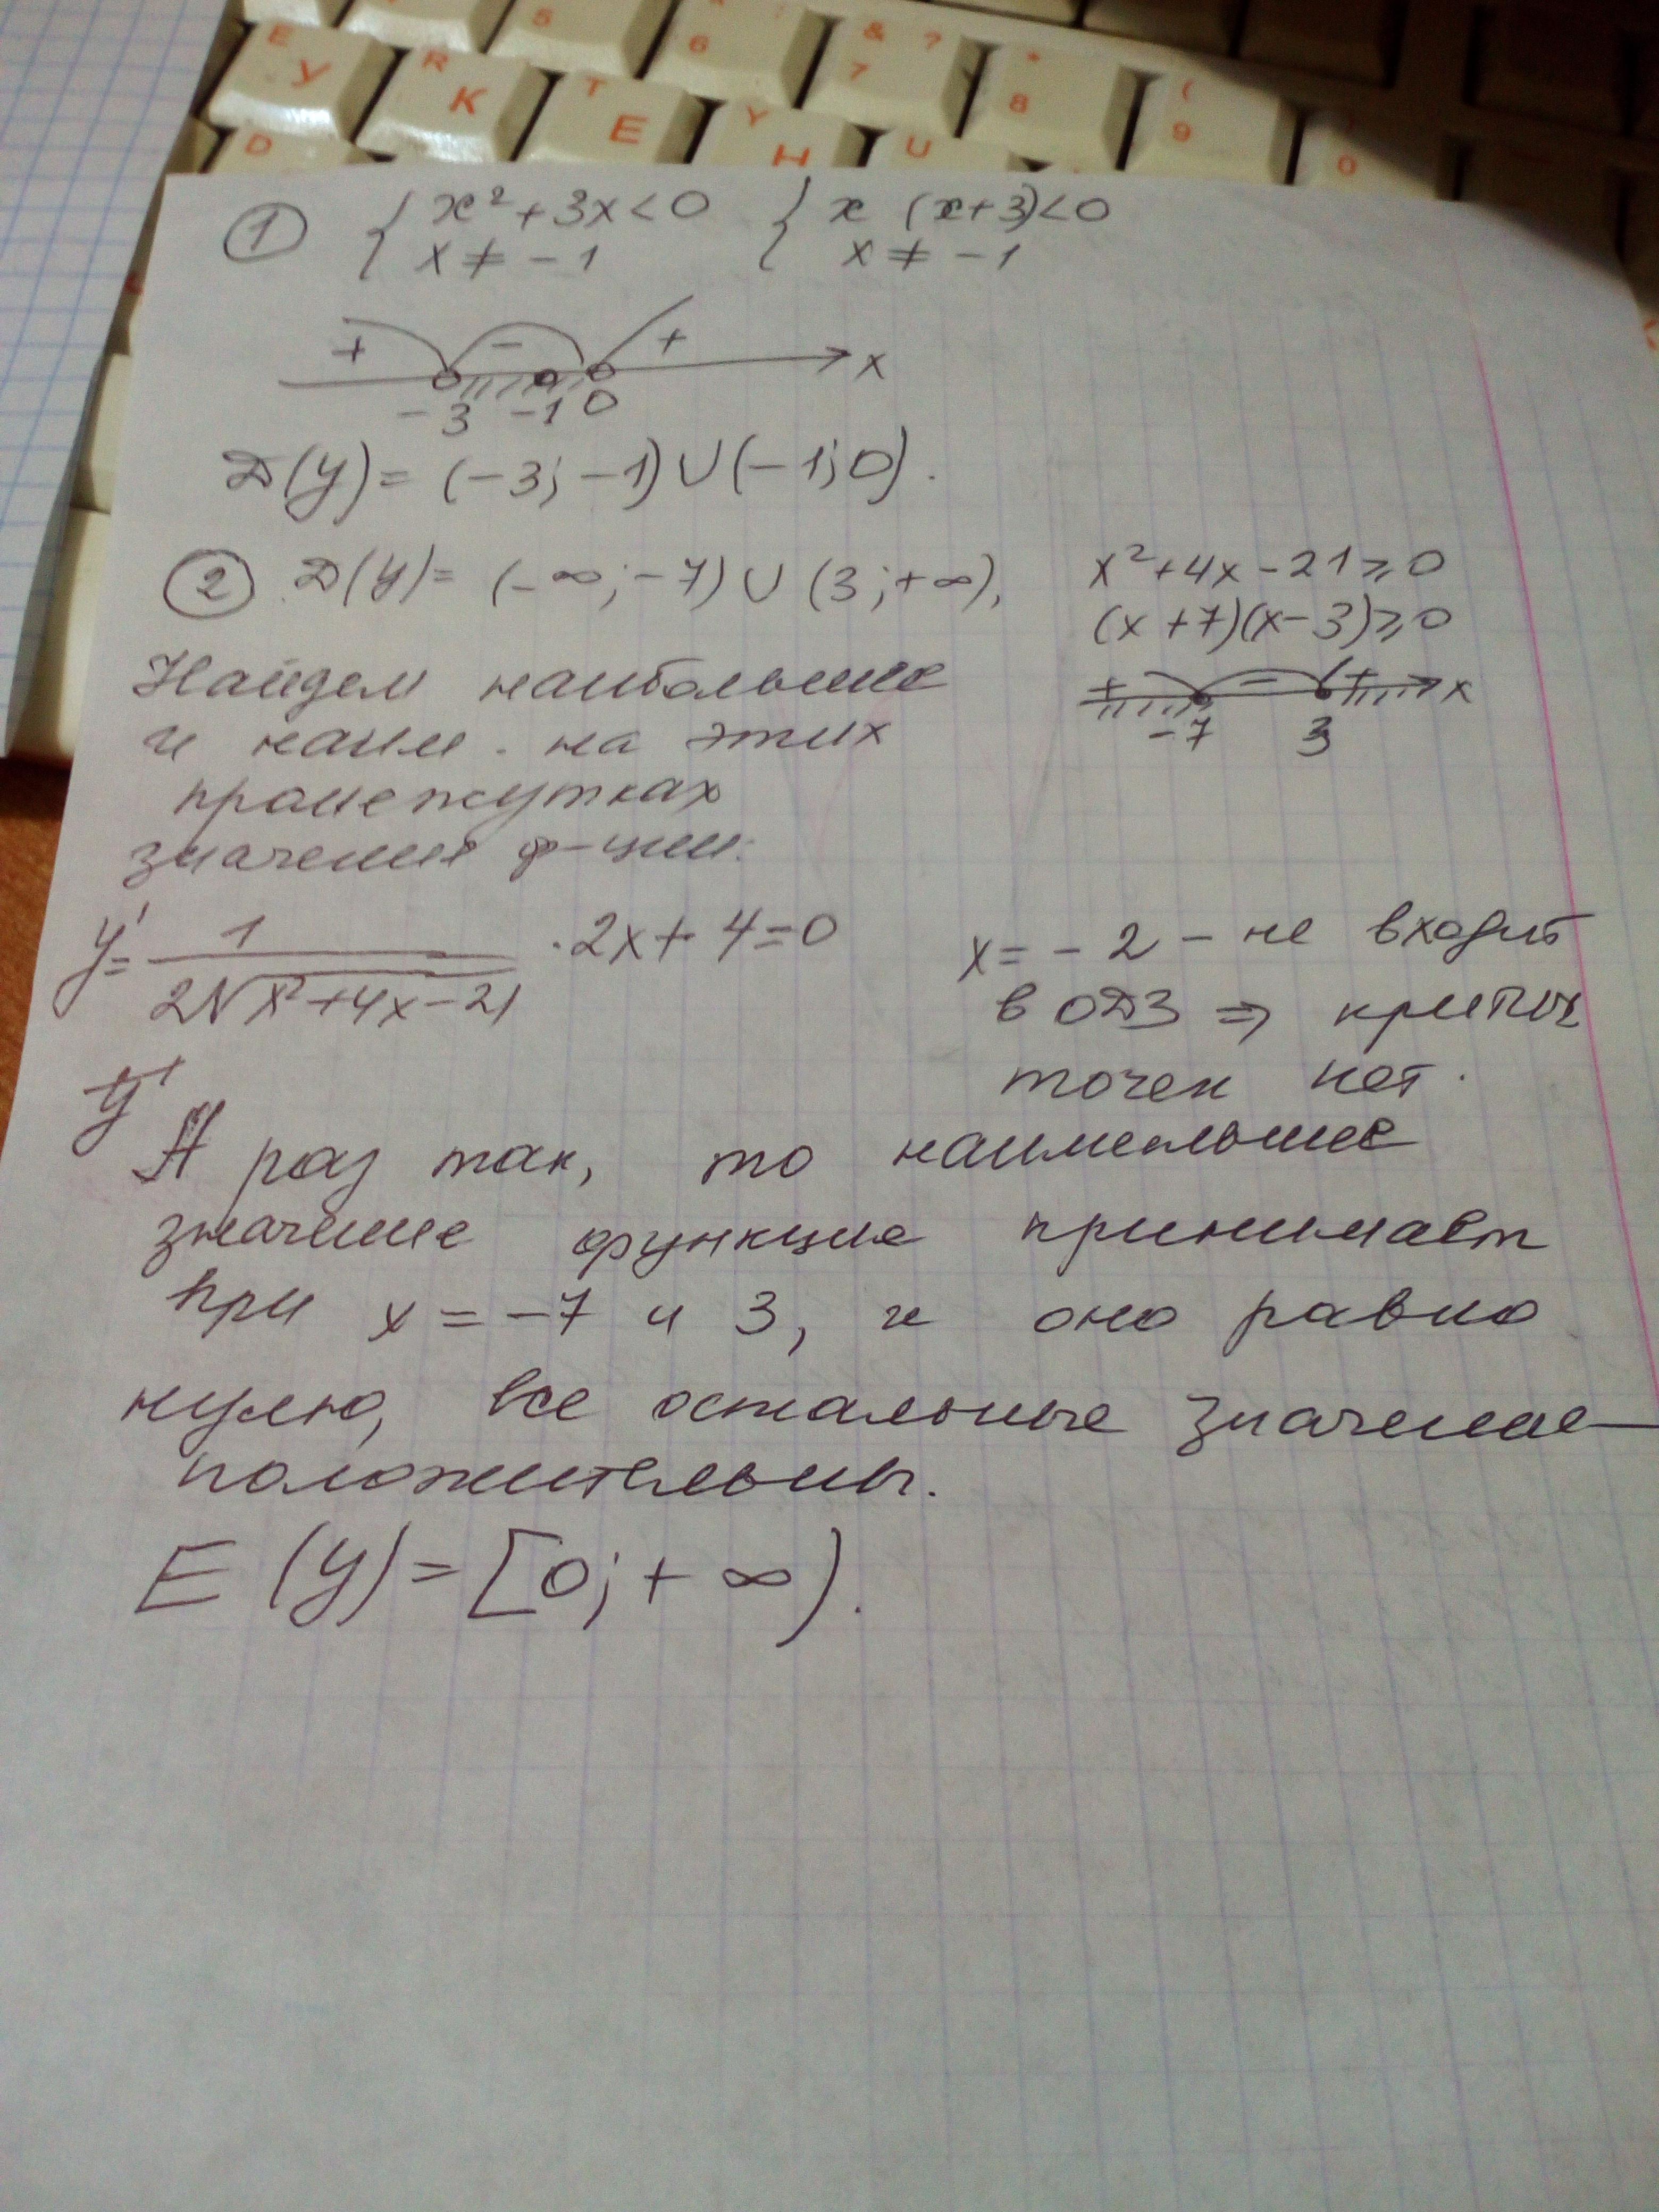 5 6 & 7 ? * 8 ( 9 ) 0
E У R К T Е Y Н U
D
① { x² + 3x < 0 { x (x+3) < 0
x ≠ -1 x ≠ -1
+ - + x
-3 -1 0
D(y) = (-3; -1) ∪ (-1; 0).
② D(y) = (-∞; -7) ∪ (3; +∞),
x² + 4x - 21 ≥ 0
(x + 7)(x - 3) ≥ 0
+ - + x
-7 3
Найдем наибольшие
и наим. на этих
промежутках
значения ф-ции:
y' = 1 / 2√x² + 4x - 21 · 2x + 4 = 0
x = - 2 - не входит
в ОДЗ ⇒ критич
точек нет.
y'
А раз так, то наименьшее
значение функция принимает
при x = -7 и 3, и оно равно
нулю, все остальные значения
положительны.
E (y) = [0; + ∞).